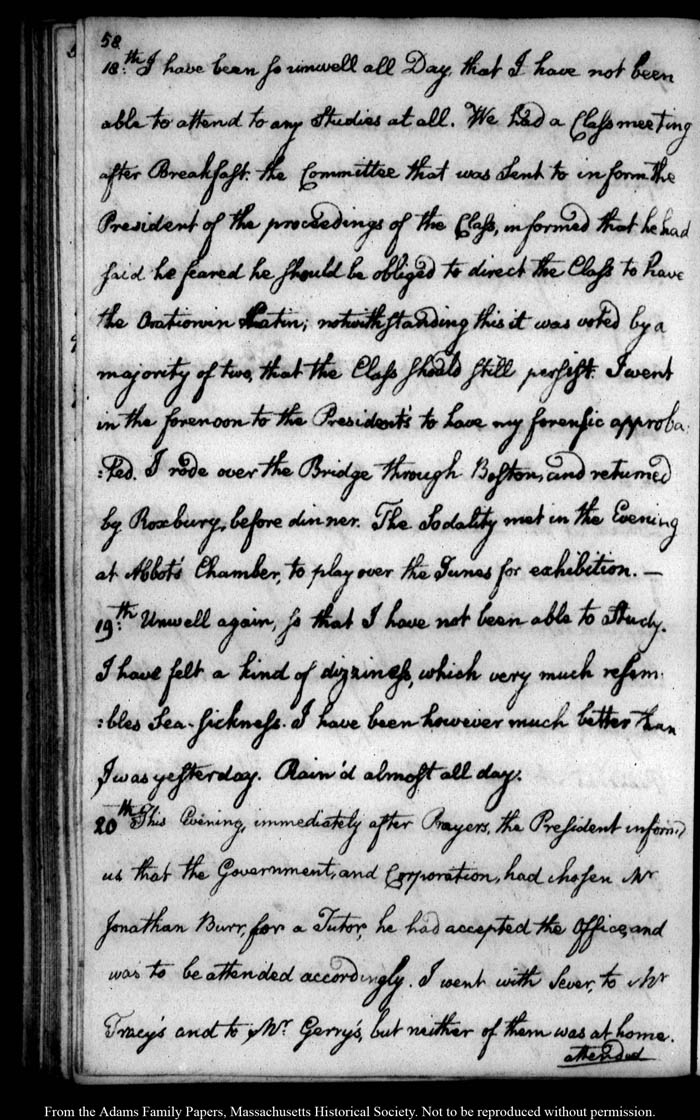 58
18th I have been so unwell all Day, that I have not been
able to attend to any Studies at all. We had a Class meeting
after Breakfast. the Committee that was sent to inform the
President of the proceedings of the Class, informed that he had
said he feared he should be obliged to direct the Class to have
the Oration in Latin; notwithstanding this it was voted by a
majority of two, that the Class should still persist. I went
in the forenoon to the President's to have my forensic approba-
:ted. I rode over the Bridge through Boston, and returned
by Roxbury, before dinner. The Sodality met in the Evening
at Abbot's Chamber, to play over the Tunes for exhibition. —
19th Unwell again, so that I have not been able to Study.
I have felt a kind of dizziness, which very much resem-
:bles Sea-sickness. I have been however much better than
I was yesterday. Rain'd almost all day.
20th This Evening, immediately after Prayers, the President inform'd
us that the Government, and Corporation, had chosen Mr
Jonathan Burr, for a Tutor, he had accepted the Office, and
was to be attended accordingly. I went with Sever, to Mr
Tracy's and to Mr. Gerry's, but neither of them was at home.
attended
From the Adams Family Papers, Massachusetts Historical Society. Not to be reproduced without permission.